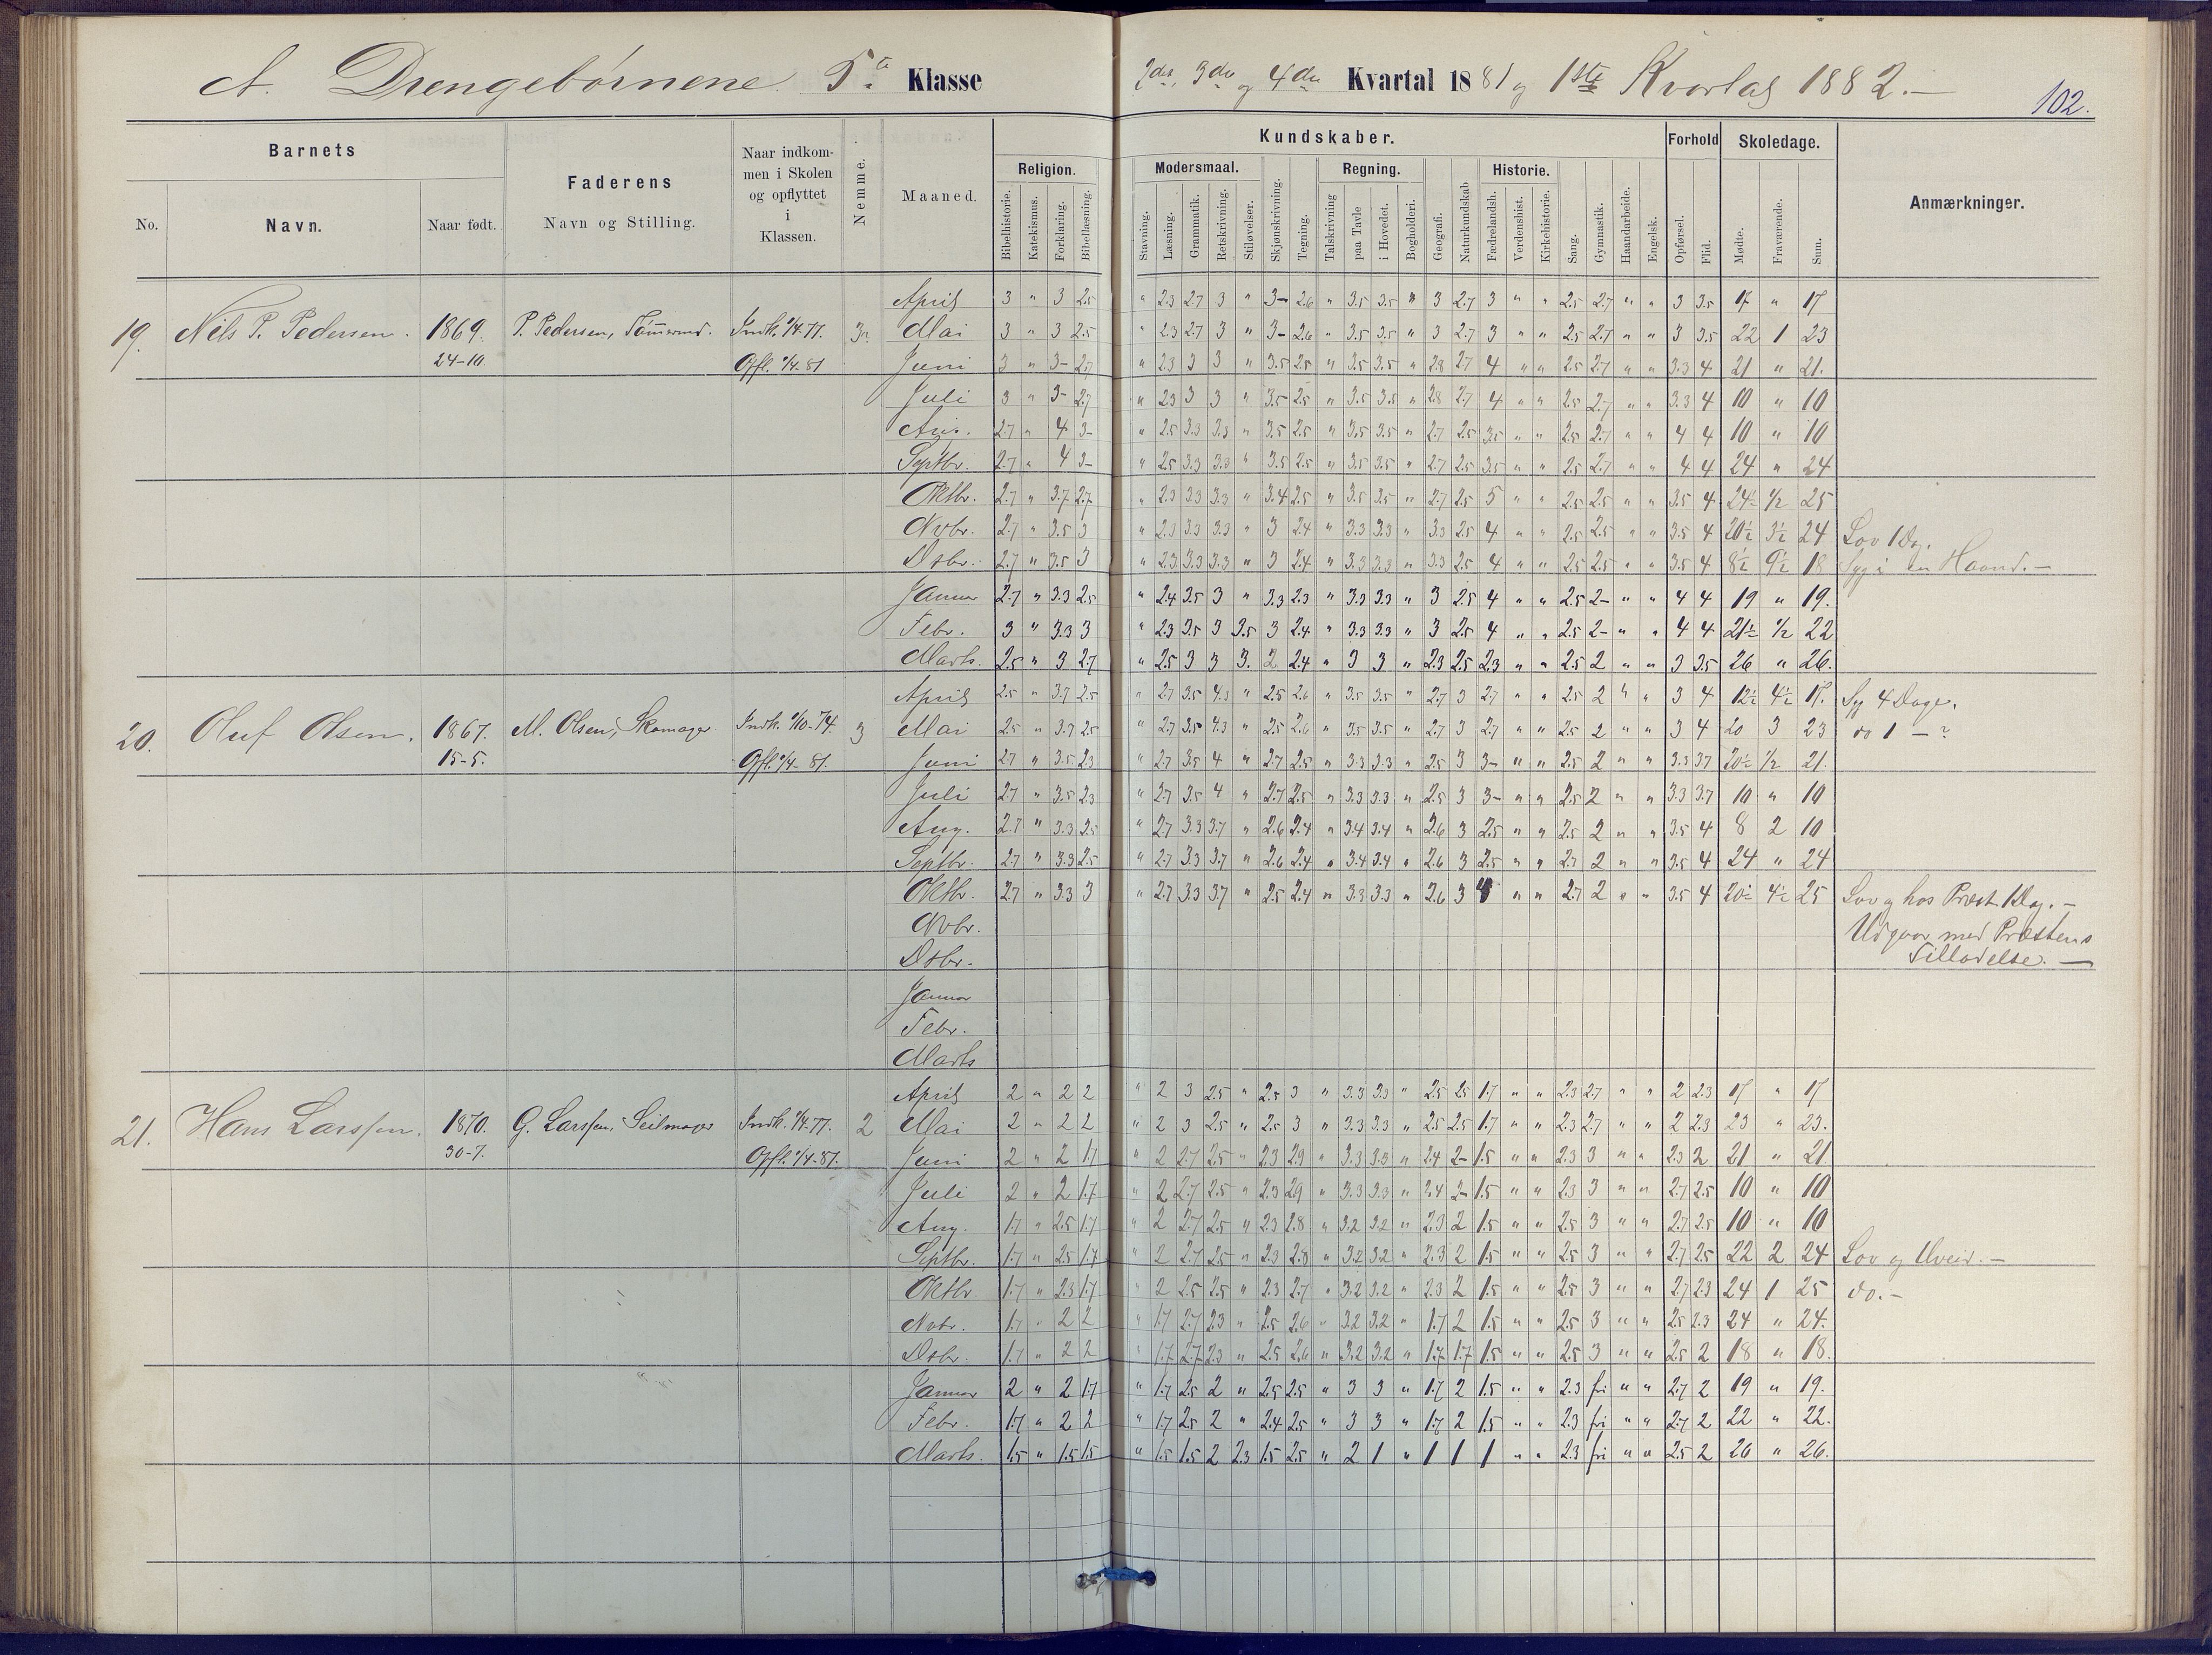 A. Drengebørnene 5te Klasse 2det, 3die og 4de Kvartal 1881 og 1ste Kvartal 1882.—
102.
Barnets
No.
Navn.
Naar født.
Faderens
Navn og Stilling.
Naar indkom-
men i Skolen
og opflyttet
i
Klassen.
Nemme.
Maaned.
Kundskaber.
Religion.
Bibelhistorie.
Katekismus.
Forklaring.
Bibellæsning.
Modersmaal.
Stavning.
Læsning.
Grammatik.
Retskrivning.
Stiløvelser.
Skjønskrivning.
Tegning.
Regning.
Talskrivning
paa Tavle
i Hovedet.
Bogholderi.
Geografi.
Naturkundskab
Historie.
Fædrelandsh.
Verdenshist.
Kirkehistorie.
Sang.
Gymnastik.
Haandarbeide.
Engelsk.
Forhold
Opførsel.
Flid.
Skoledage.
Mødte.
Fraværende.
Sum.
Anmærkninger.
19. Nils P. Pedersen. 1869. 24-10. P. Pedersen, Tømmermd. Indk. 1/4-77. Opfl. 1/4-81
April 3 " 3 2.5 " 2.3 2.7 3 " 3- 2.6 " 3.5 3.5 " 3 2.7 3 " " 2.5 2.7 " " 3 3.5 17 " 17
Mai 3 " 3 2.5 " 2.3 2.7 3 " 3- 2.6 " 3.5 3.5 " 3 2.7 3 " " 2.5 2.7 " " 3 3.5 22 1 23
Juni 3 " 3- 2.7 " 2.3 3 3 " 3.5 2.5 " 3.5 3.5 " 2.8 2.7 4 " " 2.5 2.7 " " 3.3 4 21 " 21.
Juli 3 " 3- 2.7 " 2.3 3 3 " 3.5 2.5 " 3.5 3.5 " 2.8 2.7 4 " " 2.5 2.7 " " 3.3 4 10 " 10
Aug. 2.7 " 4 3- " 2.5 3.3 3.3 " 3.5 2.5 " 3.5 3.5 " 2.7 2.5 3.5 " " 2.5 2.7 " " 4 4 10 " 10
Septbr. 2.7 " 4 3- " 2.5 3.3 3.3 " 3.5 2.5 " 3.5 3.5 " 2.7 2.5 3.5 " " 2.5 2.7 " " 4 4 24 " 24
Oktbr. 2.7 " 3.7 2.7 " 2.3 3.3 3.3 " 3.4 2.5 " 3.5 3.5 " 2.7 2.5 5 " " 2.5 2.5 " " 3.5 4 24½ ½ 25
Nvbr. 2.7 " 3.5 3 " 2.3 3.3 3.3 " 3 2.4 " 3.3 3.3 " 3.3 2.5 4 " " 2.5 2.5 " " 3.5 4 20½ 3½ 24 Lov 1 Dag.
Dsbr. 2.7 " 3.5 3 " 2.3 3.3 3.3 " 3 2.4 " 3.3 3.3 " 3.3 2.5 4 " " 2.5 2.5 " " 3.5 4 8½ 9½ 18 Syg i en Haand.—
Januar 2.7 " 3.3 2.5 " 2.4 3.5 3 " 3.3 2.3 " 3.3 3.3 " 3 2.5 4 " " 2.5 2- " " 4 4 19 " 19.
Febr. 3 " 3.3 3 " 2.3 3.5 3 3.5 3 2.4 " 3.3 3.3 " 3 2.5 4 " " 2.5 2- " " 4 4 21½ ½ 22
Marts. 2.5 " 3 2.7 " 2.5 3 3 3. 2 2.4 " 3 3 " 2.3 2.5 2.3 " " 2.5 2 " " 3 3.5 26 " 26.
20. Oluf Olsen. 1867. 15-5. M. Olsen, Skomager Indk. 1/10-74. Opfl. 1/4-81. 3
April 2.5 " 3.7 2.5 " 2.7 3.5 4.3 " 2.5 2.6 " 3.5 3.5 " 2.7 3 2.7 " " 2.5 2 " " 3 4 12½ 4½ 17. Syg 4 Dage.
Mai 2.5 " 3.7 2.5 " 2.7 3.5 4.3 " 2.5 2.6 " 3.5 3.5 " 2.7 3 2.7 " " 2.5 2 " " 3 4 20 3 23 do 1 — ?
Juni 2.7 " 3.5 2.3 " 2.7 3.5 4 " 2.7 2.5 " 3.3 3.3 " 2.5 3 3- " " 2.5 2 " " 3.3 3.7 20½ ½ 21.
Juli 2.7 " 3.5 2.3 " 2.7 3.5 4 " 2.7 2.5 " 3.3 3.3 " 2.5 3 3- " " 2.5 2 " " 3.3 3.7 10 " 10
Aug. 2.7 " 3.3 2.5 " 2.7 3.3 3.7 " 2.6 2.4 " 3.4 3.4 " 2.6 3 2.5 " " 2.5 2 " " 3.5 4 8 2 10
Septbr. 2.7 " 3.3 2.5 " 2.7 3.3 3.7 " 2.6 2.4 " 3.4 3.4 " 2.6 3 2.5 " " 2.7 2 " " 3.5 4 24 " 24
Oktbr. 2.7 " 3.3 3 " 2.7 3.3 3.7 " 2.5 2.4 " 3.3 3.3 " 2.6 3 4 " " 2.7 2 " " 3.5 4 20½ 4½ 25 Lov og hos Præst 1 Dag.—
Nvbr. Udgaar med Præstens
Dsbr. Tilladelse.—
Januar
Febr.
Marts
21. Hans Larssen. 1870. 30-7. G. Larssen, Seilmager Indk. 1/4-77. Opfl. 1/4-81. 2
April 2 " 2 2 " 2 3 2.5 " 2.5 3 " 3.3 3.3 " 2.5 2.5 1.7 " " 2.3 2.7 " " 2 2.3 17 " 17
Mai 2 " 2 2 " 2 3 2.5 " 2.5 3 " 3.3 3.3 " 2.5 2.5 1.7 " " 2.3 2.7 " " 2 2.3 23 " 23.
Juni 2 " 2 1.7 " 2 2.7 2.5 " 2.3 2.9 " 3.3 3.3 " 2.4 2- 1.5 " " 2.3 3 " " 2.3 2 21 " 21
Juli 2 " 2 1.7 " 2 2.7 2.5 " 2.3 2.9 " 3.3 3.3 " 2.4 2- 1.5 " " 2.3 3 " " 2.7 2.5 10 " 10
Aug. 1.7 " 2.5 1.7 " 2 2.7 2.5 " 2.3 2.8 " 3.2 3.2 " 2.3 2 1.5 " " 2.5 3 " " 2.7 2.5 10 " 10
Septbr. 1.7 " 2.5 1.7 " 2 2.7 2.5 " 2.3 2.8 " 3.2 3.2 " 2.3 2 1.5 " " 2.5 3 " " 2.7 2.5 22 2 24 Lov og Uveir.—
Oktbr. 1.7 " 2.3 1.7 " 2 2.5 2.5 " 2.3 2.7 " 3.2 3.2 " 2.3 2 1.5 " " 2.5 3 " " 2.7 2.3 24 1 25 do.—
Nvbr. 1.7 " 2 2 " 1.7 2.7 2.3 " 2.5 2.6 " 3.2 3.2 " 1.7 2 1.5 " " 2.5 3 " " 2.5 2.3 24 " 24.
Dsbr. 1.7 " 2 2 " 1.7 2.7 2.3 " 2.5 2.6 " 3.2 3.2 " 1.7 1.7 1.5 " " 2.5 3 " " 2.5 2 18 " 18.
Januar 2 " 2 1.7 " 1.7 2.5 2 " 2.5 2.5 " 3 3 " 1.7 2 1.5 " " 2.3 fri " " 2.7 2 19 " 19.
Febr. 1.7 " 2 2 " 1.7 2.5 2 " 2.4 2.5 " 3 3 " 1.7 2 1.5 " " 2.3 fri " " 2.7 2 22 " 22.
Marts. 1.5 " 1.5 1.5 " 1.5 1.5 2 2.3 1.5 2.5 " 2 1 " 1 1 1 " " 2.3 fri " " 2.5 2 26 " 26.